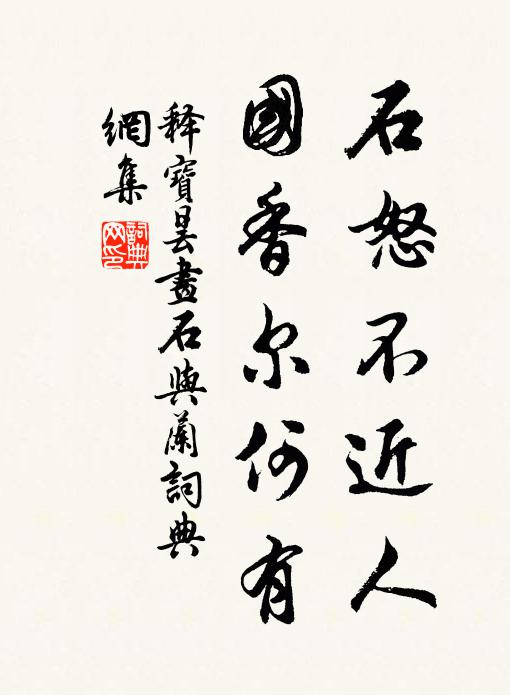 石怒不近人
國香尔何有
释寶昙畫石與蘭詞典
網集
詞典
网印